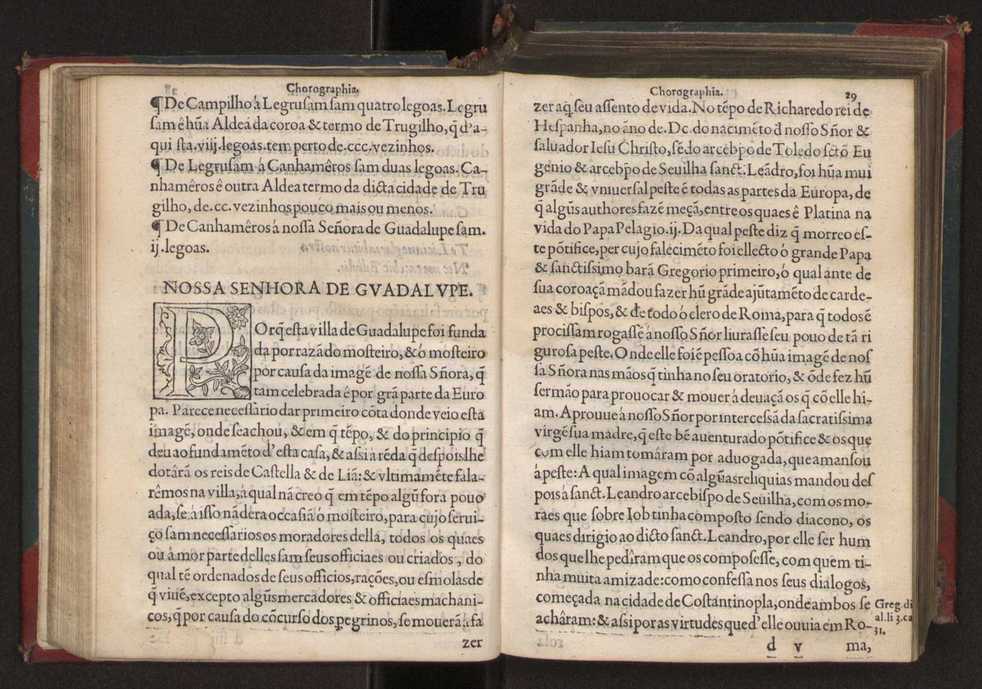 Chorographia.
¶ De Campilho á Legrusam sam quatro legoas. Legru
sam ê hũa Aldea da coroa & termo de Trugilho, q̃ d'a-
qui sta .viij. legoas. tem perto de .ccc. vezinhos.
¶ De Legrusam á Canhamêros sam duas legoas. Ca-
nhamêros ê outra Aldea termo da dicta cidade de Tru
gilho, de .cc. vezinhos pouco mais ou menos.
¶ De Canhamêros á nossa Señora de Guadalupe sam.
ij. legoas.
NOSSA SENHORA DE GVADALVPE.
POrq̃ esta villa de Guadalupe foi funda
da por razã do mosteiro, & ó mosteiro
por causa da imagẽ de nossa Señora, q̃
tam celebrada ê por grã parte da Euro
pa. Parece necessario dar primeiro cõta donde veio esta
imagẽ, onde se achou, & em q̃ tẽpo, & do principio q̃
deu ao fundamẽto d'esta casa, & assi a rẽda q̃ despois lhe
dotárã os reis de Castella & de Liã: & vltimamẽte fala-
rêmos na villa, á qual nã creo q̃ em tẽpo algũ fora pouo
ada, se á isso nã dera occasiã ó mosteiro, para cujo serui-
ço sam necessarios os moradores della, todos os quaes
ou á mor parte delles sam seus officiaes ou criados, do
qual tẽ ordenados de seus officios, rações, ou esmolas de
q̃ viuẽ, excepto algũs mercadores & officiaes machani-
cos, q̃ por causa do cõcurso dos pegrinos, se mouerã á fa
zer
Chorographia.
29
zer aq̃ seu assento de vida. No tẽpo de Richaredo rei de
Hespanha, no ãno de .Dc. do nacimẽto d̃ nosso Sñor &
saluador Iesu Christo, sẽdo arcebpo de Toledo sctõ Eu
genio & arcebpo de Seuilha sanct. Leãdro, foi hũa mui
grãde & vniuersal peste ẽ todas as partes da Europa, de
q̃ algũs authores fazẽ meçã, entre os quaes ê Platina na
vida do Papa Pelagio .ij. Da qual peste diz q̃ morreo es-
te põtifice, per cujo falecimẽto foi ellecto ó grande Papa
& sanctissimo barã Gregorio primeiro, ó qual ante de
sua coroaçã mãdou fazer hũ grãde ajũtamẽto de carde-
aes & bispos, & de todo ó clero de Roma, para q̃ todos ẽ
procissam rogassẽ á nosso Sñor liurasse seu pouo de tã ri
gurosa peste. Onde elle foi ẽ pessoa cõ hũa imagẽ de nos
sa Sñora nas mãos q̃ tinha no seu oratorio, & õde fez hũ
sermão para prouocar & mouer á deuaçã os q̃ cõ elle hi-
am. Aprouue á nosso Sñor por intercessã da sacratissima
virgẽ sua madre, q̃ este bẽ auenturado põtifice & os que
com elle hiam tomáram por aduogada, que amansou
á peste: A qual imagem cõ algũas reliquias mandou des
pois á sanct. Leandro arcebispo de Seuilha, com os mo-
raes que sobre Iob tinha composto sendo diacono, os
quaes dirigio ao dicto sanct. Leandro, por elle ser hum
dos que lhe pedîram que os composesse, com quem ti-
nha muita amizade: como confessa nos seus dialogos,
começada na cidade de Costantinopla, onde ambos se
achâram: & assi por as virtudes que d'elle ouuia em Ro-
Greg. di
al. li 3. ca
31.
d v
ma,